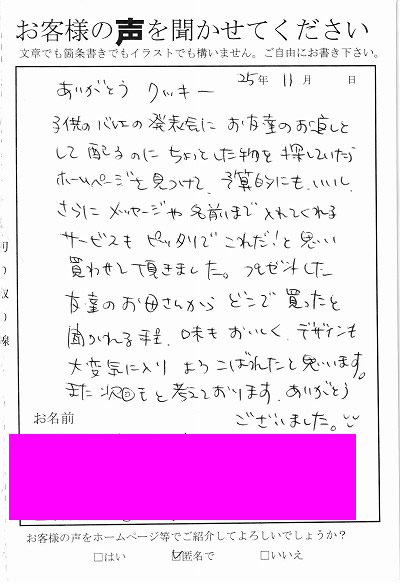 お客様の声を聞かせてください
文章でも箇条書きでもイラストでも構いません。ご自由にお書き下さい。
25年 11月 日
ありがとう クッキー
子供のバレエの発表会に お友達のお返しと
して 配るのに ちょっとした物を 探していたら
ホームページを見つけて、予算的にも、いいし、
さらに メッセージや 名前まで 入れてくれる
サービスも ピッタリで これだ!と 思い
買わせて頂きました。プレゼントした
友達の お母さんから どこで 買ったと
聞かれる程、味も おいしく、デザインも
大変気に入り よろこばれたと思います。
また 次回もと 考えております。ありがとう
ございました。
お名前
お客様の声をホームページ等でご紹介してよろしいでしょうか?
□はい ☑匿名で □いいえ